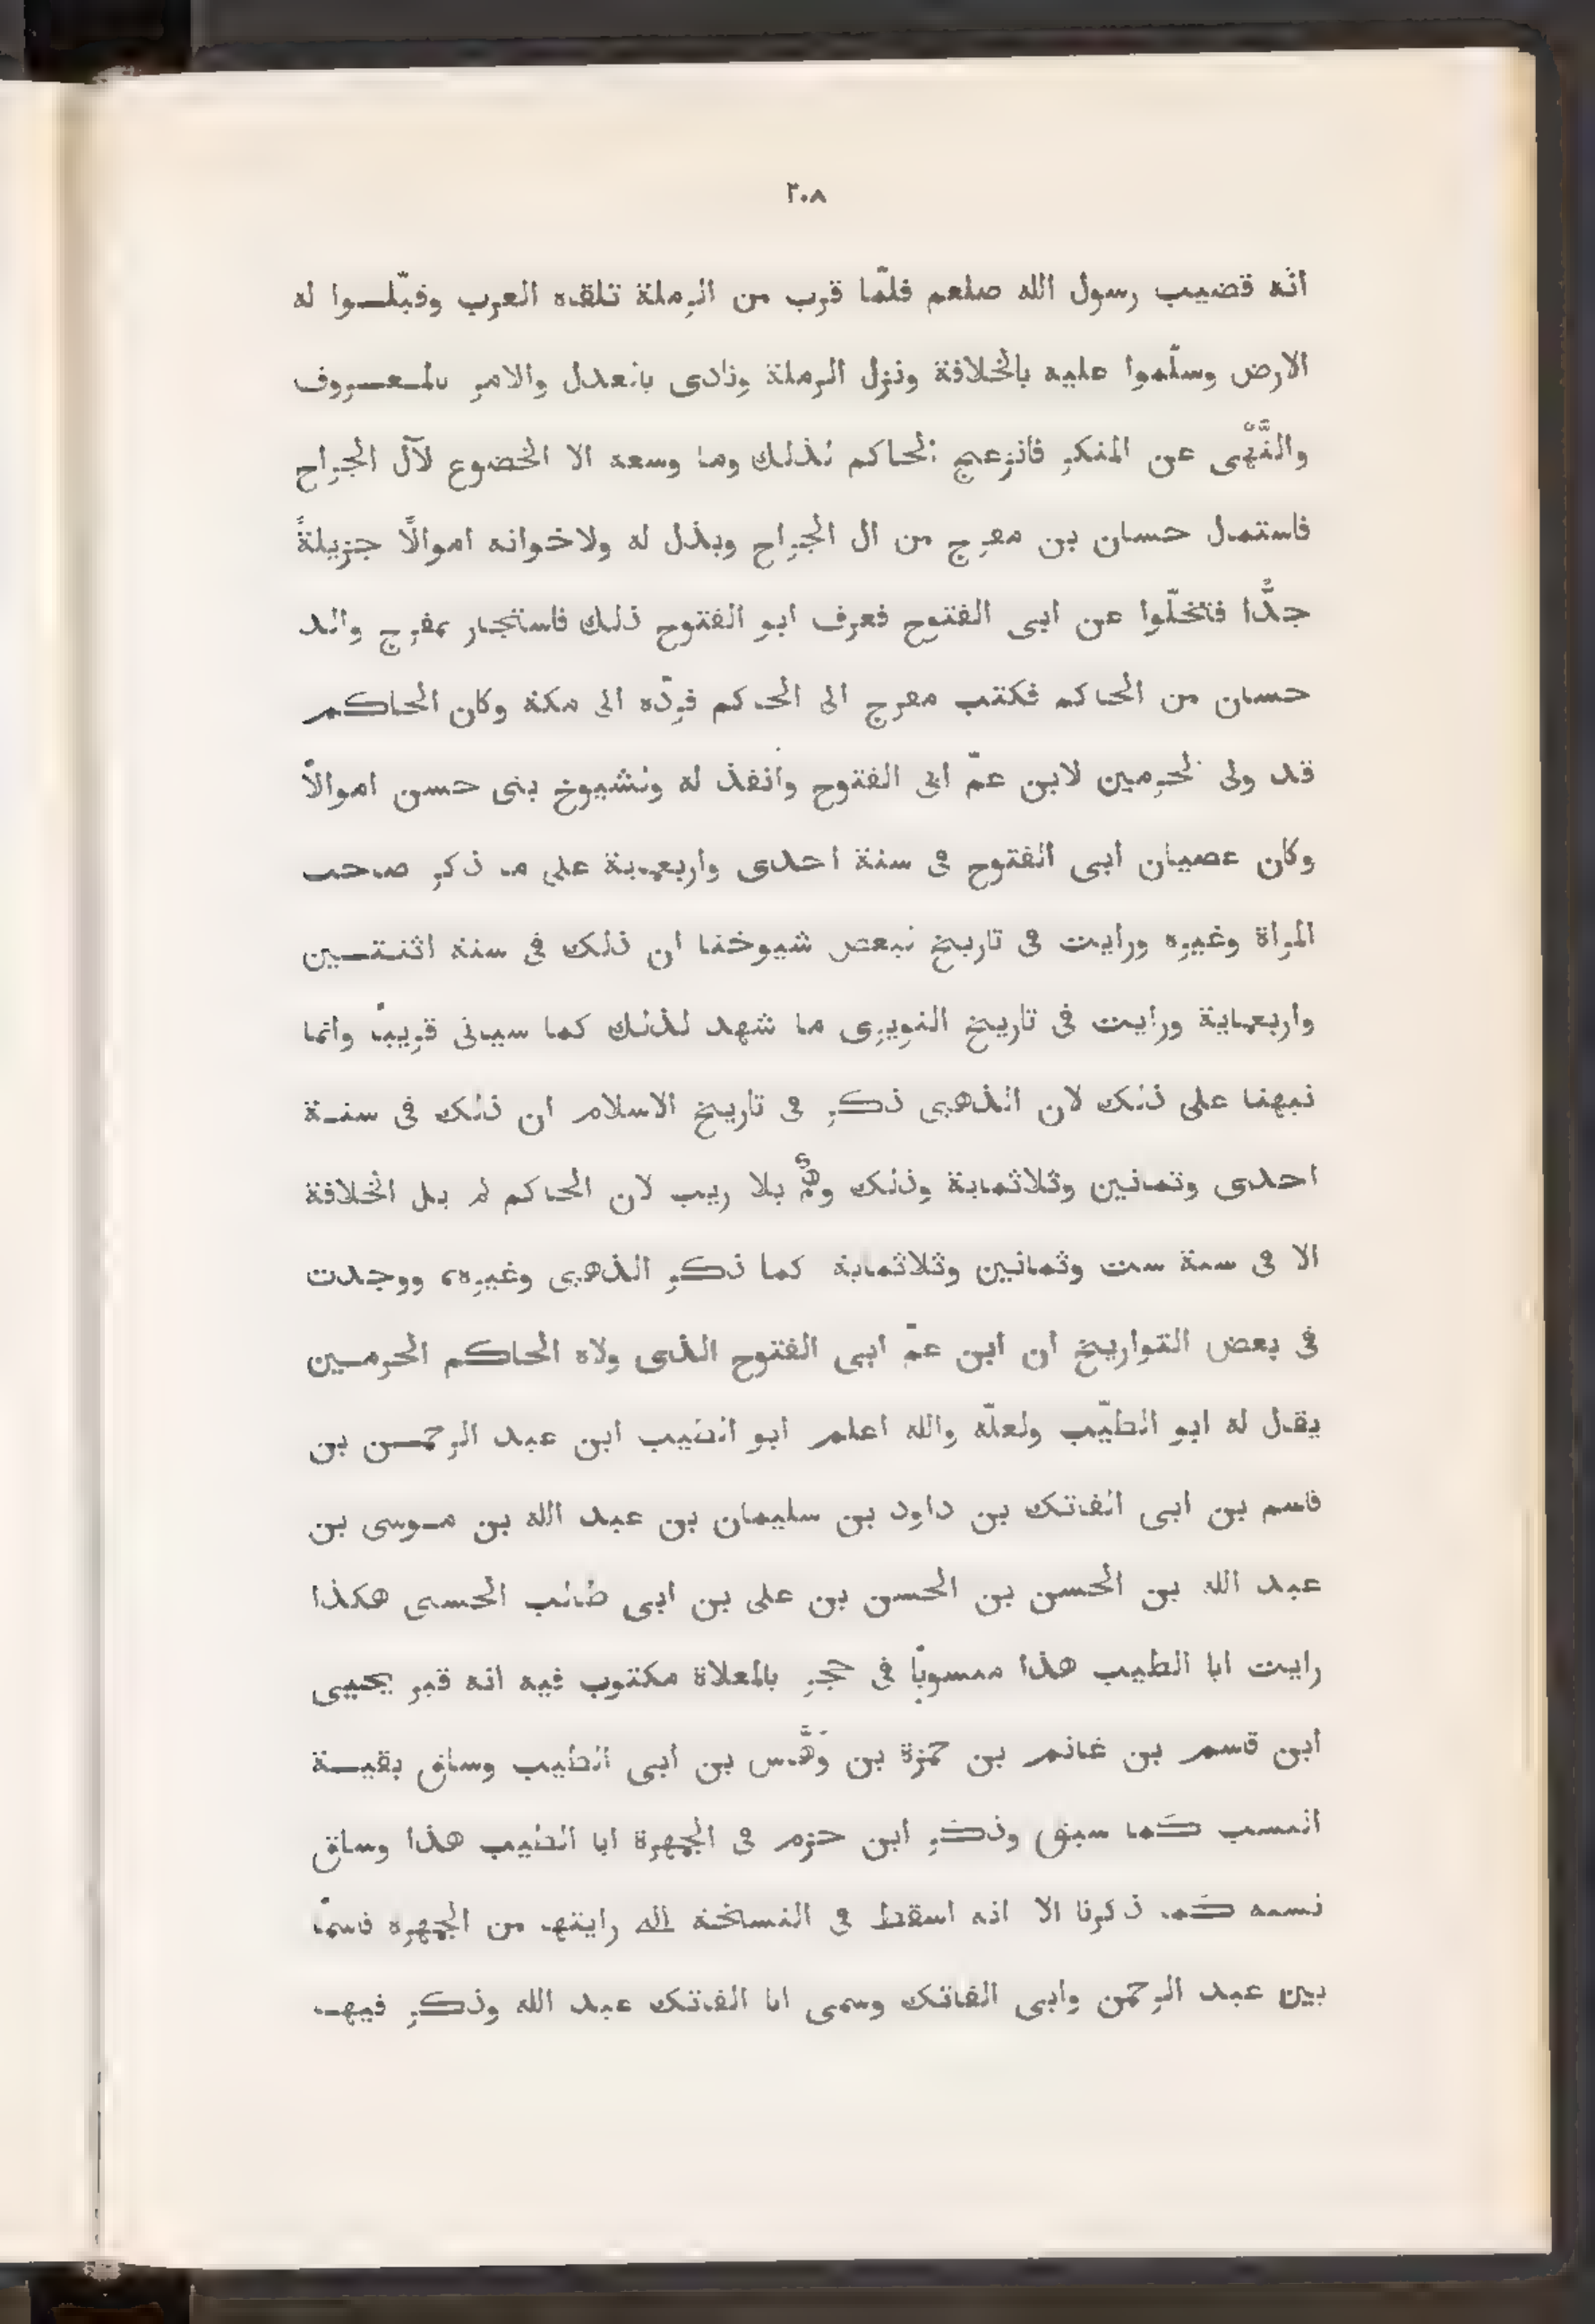 ٢٠٨
انّه قضيب رسول الله صلعم فلمّا قرب من الرملة تلقاه العرب وقبّلوا له
الارض وسلّموا عليه بالخلافة ونزل الرملة ونادى بالعدل والامر بالمعروف
والنَّهْى عن المنكر فانزعج الحاكم لذلك وما وسعه الا الخضوع لآل الجراح
فاستمال حسان بن مفرج من ال الجراح وبذل له ولاخوانه اموالًا جزيلةً
جدًّا فتخلّوا عن ابى الفتوح فعرف ابو الفتوح ذلك فاستجار بمفرج والد
حسان من الحاكم فكتب مفرج الى الحاكم فردّه الى مكة وكان الحاكم
قد ولى الحرمين لابن عمّ ابى الفتوح وانفذ له ولشيوخ بنى حسن اموالًا
وكان عصيان ابى الفتوح فى سنة احدى واربعماية على ما ذكر صاحب
المراة وغيره ورايت فى تاريخ لبعض شيوخنا ان ذلك فى سنة اثنتين
واربعماية ورايت فى تاريخ النويرى ما شهد لذلك كما سياتى قريبًا وانما
نبهنا على ذلك لان الذهبى ذكر فى تاريخ الاسلام ان ذلك فى سنة
احدى وثمانين وثلاثماية وذلك وهمٌ بلا ريب لان الحاكم لم يل الخلافة
الا فى سنة ست وثمانين وثلاثماية كما ذكر الذهبى وغيره، ووجدت
فى بعض التواريخ ان ابن عمّ ابى الفتوح الذى ولاه الحاكم الحرمين
يقال له ابو الطيّب ولعلّه والله اعلم ابو الطيب ابن عبد الرحمن بن
قاسم بن ابى الفاتك بن داود بن سليمان بن عبد الله بن موسى بن
عبد الله بن الحسن بن الحسن بن على بن ابى طالب الحسنى هكذا
رايت ابا الطيب هذا منسوبًا فى حجر بالمعلاة مكتوب فيه انه قبر يحيى
ابن قاسم بن غانم بن حمزة بن وَهَّاس بن ابى الطيب وساق بقية
النسب كما سبق وذكر ابن حزم فى الجمهرة ابا الطيب هذا وساق
نسبه كما ذكرنا الا انه اسقط فى النسخة الله رايتها من الجمهرة قاسمًا
بين عبد الرحمن وابى الفاتك وسمى ابا الفاتك عبد الله وذكر فيها